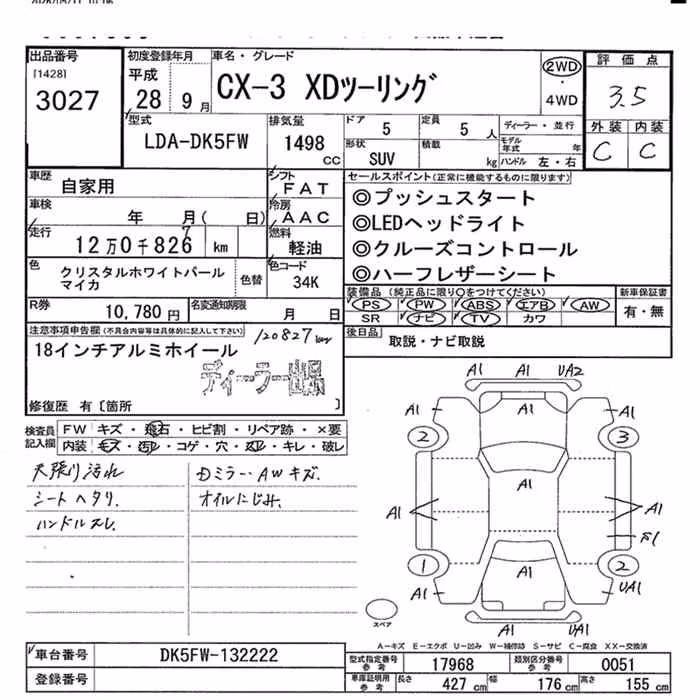 出品番号
[1428]
3027
初度登録年月
平成
28 9 月
車名・グレード
CX-3 XDツーリング
2WD
・
4WD
評価点
3.5
外装 内装
C C
型式
LDA-DK5FW
排気量
1498 CC
ドア 5
定員 5 人
形状 SUV
積載 kg
ディーラー・並行
モデル年式 年
ハンドル 左・右
車歴
自家用
シフト
FAT
車検 年 月( 日)
冷房
AAC
走行
12万0千826 km
7
燃料
軽油
色
クリスタルホワイトパール
マイカ
色替
色コード
34K
R券
10,780 円
名変通知期限
月 日
セールスポイント(正常に機能するものに限ります)
◎プッシュスタート
◎LEDヘッドライト
◎クルーズコントロール
◎ハーフレザーシート
装備品(純正品に限り○をつけてください)
PS PW ABS エアB AW
SR ナビ TV カワ
新車保証書
有・無
後日品
取説・ナビ取説
注意事項申告欄(不具合内容等は具体的に記入して下さい)
120827km
18インチアルミホイール
ディーラー出品
修復歴 有〔箇所 〕
検査員
記入欄
FW キズ・飛石・ヒビ割・リペア跡・×要
内装・キズ・汚れ・コゲ・穴・スレ・キレ・破レ
天張り汚れ
シートヘタリ.
ハンドルスレ.
Dミラー・AWキズ.
オイルにじみ.
A1 A1 UA2
A1 A1 A1
2 3
A1
A1 A1
1 2
A1 A1 UA1
A1 UA1
スペア
A-キズ E-エクボ U-凹み W-補修跡 S-サビ C-腐食 XX-交換済
車台番号
DK5FW-132222
登録番号
型式指定番号
参考
17968
類別区分番号
参考
0051
車庫証明用
参考
長さ 427 cm 幅 176 cm 高さ 155 cm